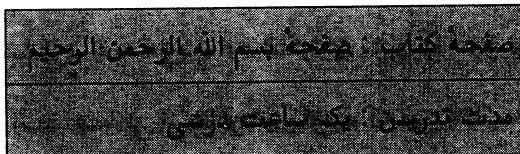 صفحهٔ کتاب : صفحهٔ بسم الله الرحمن الرحیم
مدت تدریس : یک ساعت درسی